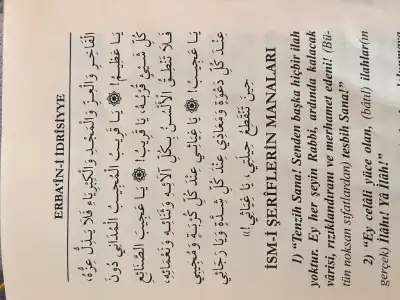 ERBA'İN-İ İDRİSİYYE
الْفَاخِرِ وَالْعِزِّ وَالْمَجْدِ وَالْكِبْرِيَاءِ فَلَا يَذِلُّ عِزُّهُ،
يَا عَظِيمُ! ۞ يَا قَرِيبُ الْمُجِيبُ الْمُدَانِي دُونَ
كُلِّ شَيْءٍ قُرْبُهُ، يَا قَرِيبُ! ۞ يَا عَجِيبَ الصَّنَائِعِ
فَلَا تَنْطِقُ الْأَلْسُنُ بِكُلِّ آلَائِهِ وَثَنَائِهِ وَنَعْمَائِهِ،
يَا عَجِيبُ! ۞ يَا غِيَاثِي عِنْدَ كُلِّ كُرْبَةٍ وَمُجِيبِي
عِنْدَ كُلِّ دَعْوَةٍ وَمَعَاذِي عِنْدَ كُلِّ شِدَّةٍ وَيَا رَجَائِي
حِينَ تَنْقَطِعُ حِيلَتِي، يَا غِيَاثِي!»
İSM-İ ŞERİFLERİN MANALARI
1) "Tenzih Sana! Senden başka hiçbir ilah
yoktur. Ey her şeyin Rabbi, ardında kalacak
vârisi, rızıklandıranı ve merhamet edeni! (Bü-
tün noksan sıfatlardan) tesbih Sana!"
2) "Ey celâli yüce olan, (bâtıl) ilahlar(ın
gerçek) İlâhı! Yâ İlâh!"